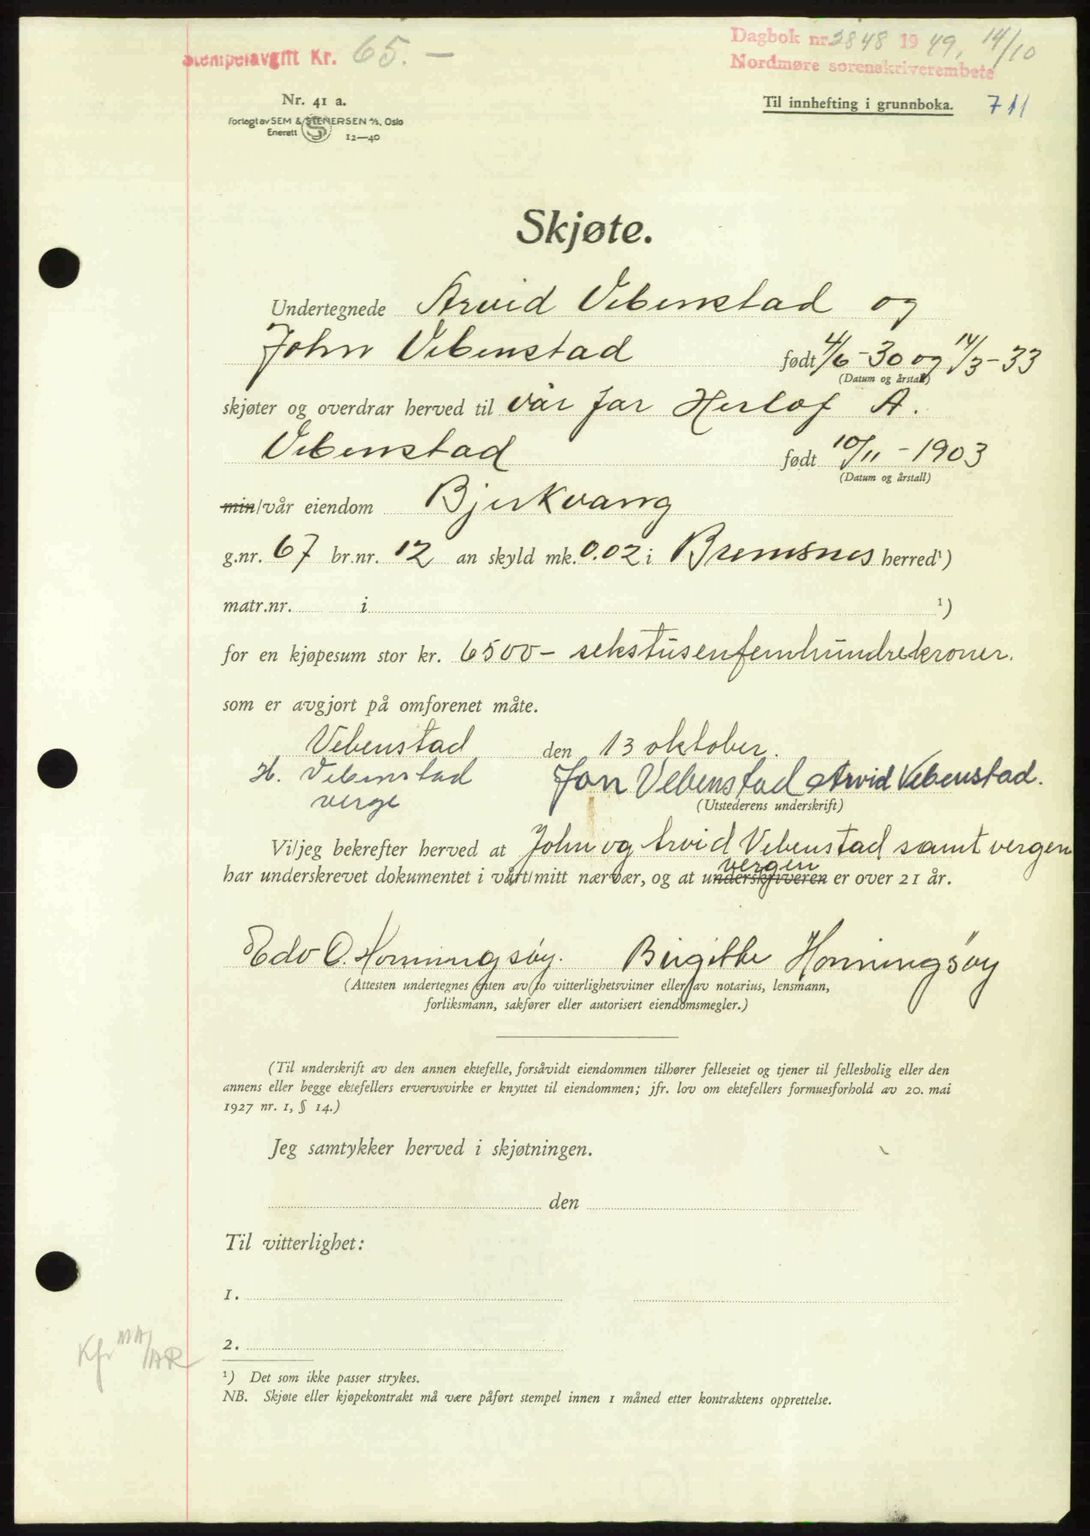 Stempelavgift Kr. 65.—
Dagbok nr. 2848 1949, 14/10
Nordmøre sorenskriverembete
Nr. 41 a.
Forlagt av SEM & STENERSEN A/S, Oslo
Enerett 12—40
Til innhefting i grunnboka. 711
Skjøte.
Undertegnede Arvid Vebenstad og
John Vebenstad født 4/6-30 og 14/3-33
(Datum og årstall)
skjøter og overdrar herved til vår far Herlof A.
Vebenstad født 10/11-1903
(Datum og årstall)
min/vår eiendom Bjerkvang
g.nr. 67 br.nr. 12 an skyld mk. 0.02 i Bremsnes herred¹)
matr.nr. i ¹)
for en kjøpesum stor kr. 6500- sekstusenfemhundrekroner.
som er avgjort på omforenet måte.
Vebenstad den 13 oktober.
H. Vebenstad Jon Vebenstad Arvid Vebenstad.
verge (Utstederens underskrift)
Vi/jeg bekrefter herved at John og Arvid Vebenstad samt vergen
vergen
har underskrevet dokumentet i vårt/mitt nærvær, og at underskriveren er over 21 år.
Edv O. Honningsøy. Birgitte Honningsöy
(Attesten undertegnes enten av to vitterlighetsvitner eller av notarius, lensmann,
forliksmann, sakfører eller autorisert eiendomsmegler.)
(Til underskrift av den annen ektefelle, forsåvidt eiendommen tilhører felleseiet og tjener til fellesbolig eller den
annens eller begge ektefellers ervervsvirke er knyttet til eiendommen; jfr. lov om ektefellers formuesforhold av 20. mai
1927 nr. 1, § 14.)
Jeg samtykker herved i skjøtningen.
den
Til vitterlighet:
1.
2.
Kfr MA/AR
¹) Det som ikke passer strykes.
NB. Skjøte eller kjøpekontrakt må være påført stempel innen 1 måned etter kontraktens opprettelse.